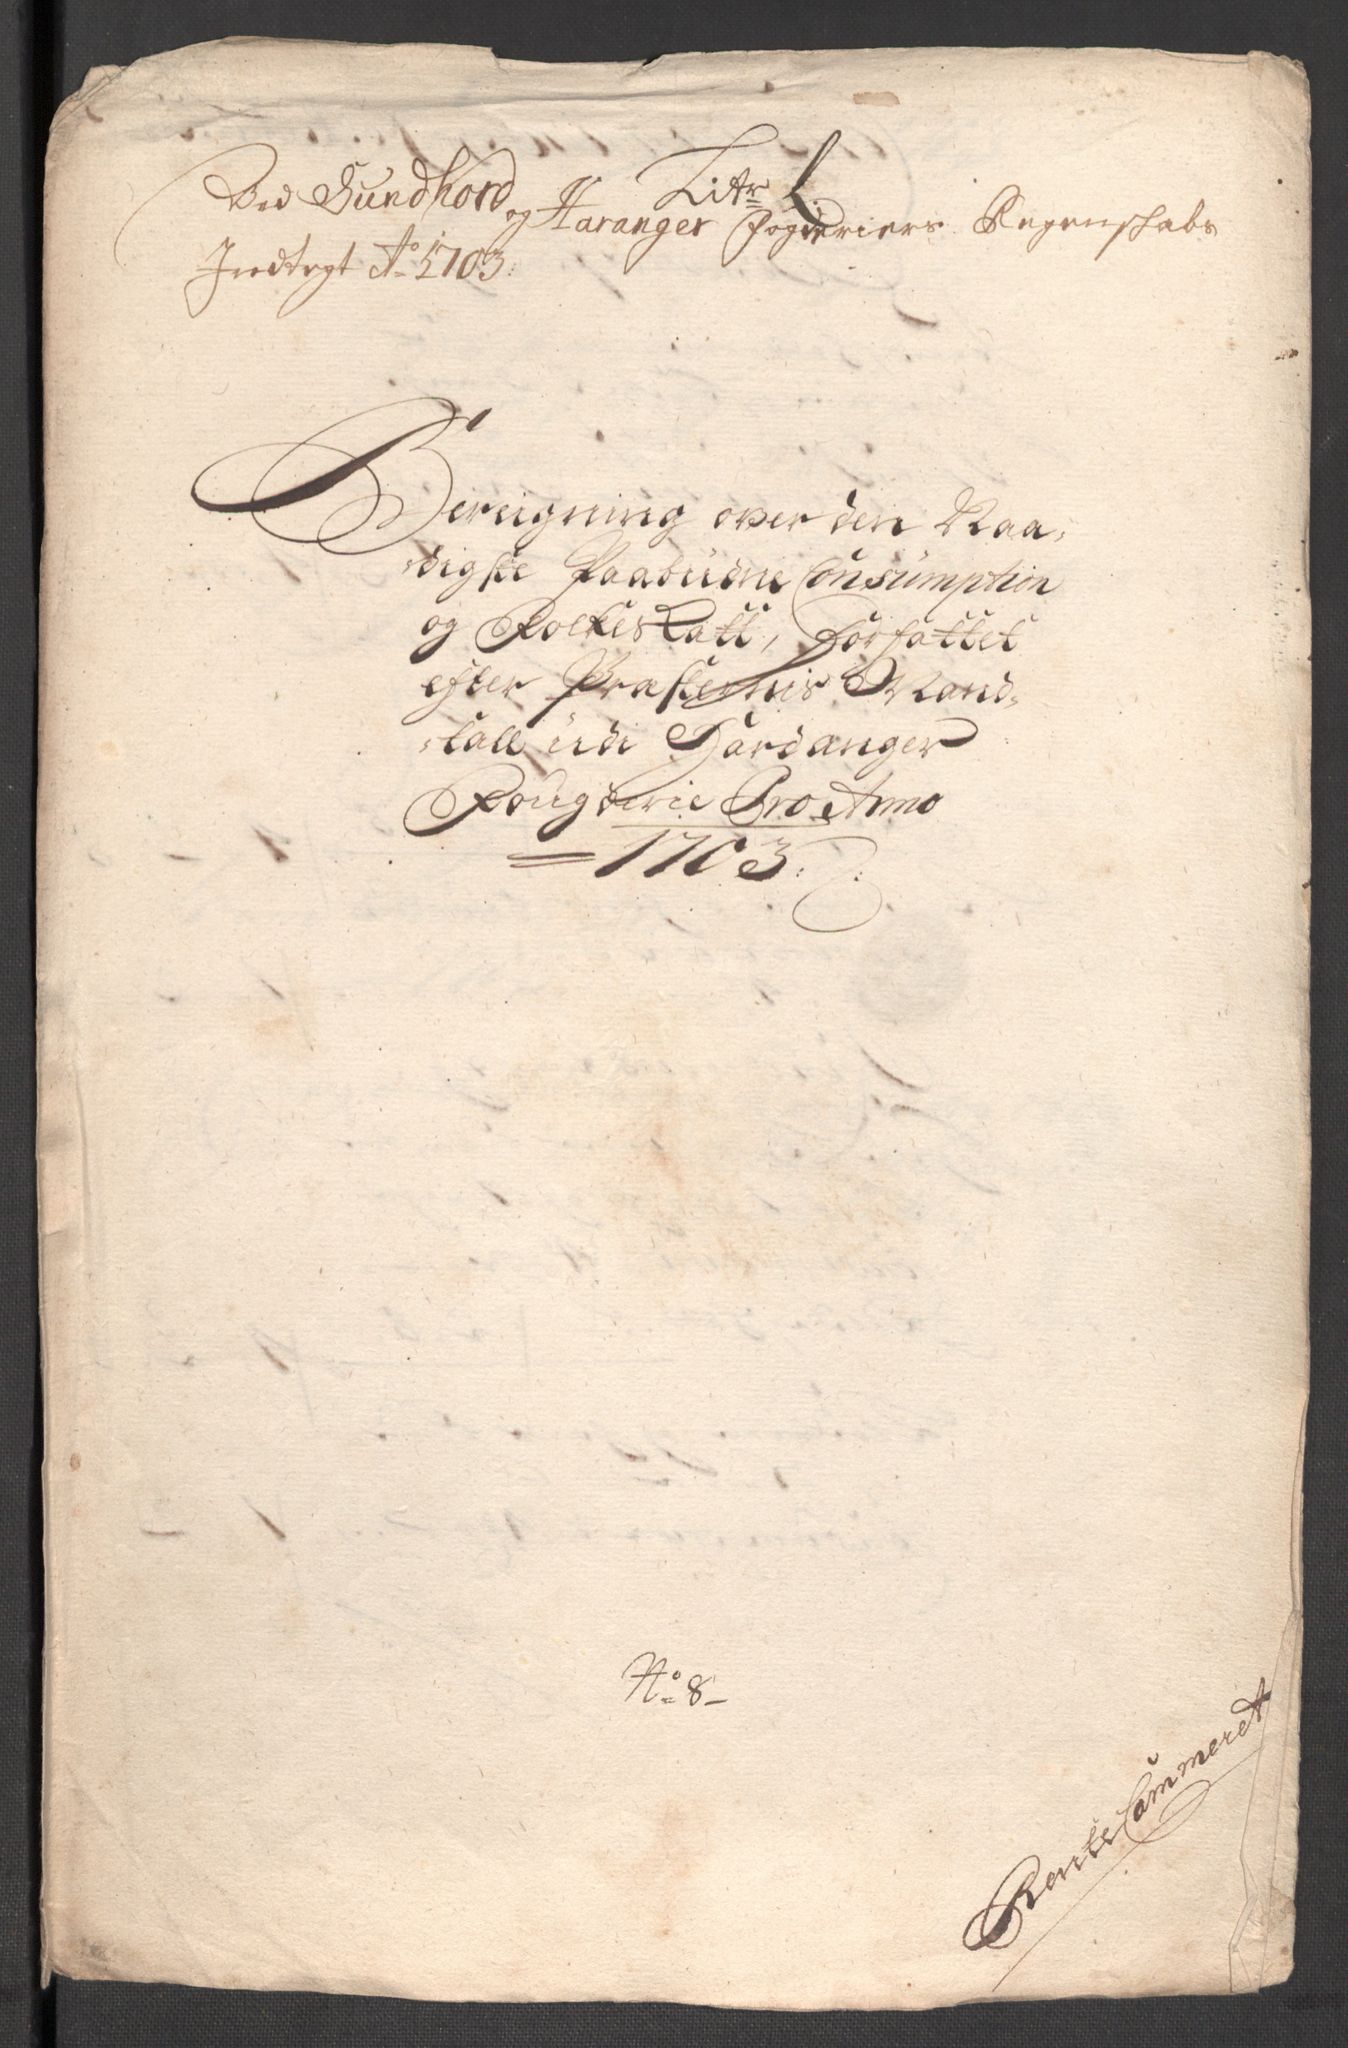 Litr L.
Ved Sundhord og Haranger Fogderiers Regenskabs
Indtegt Ao 1703.
Bereigning over den Naa-
digste Paabudne Consumption
og FolkeSkatt, Forfattet
efter Præsternis Mand-
tall udi Hardanger
Fougderie Pro Anno
1703.
No 8
RenteCammeret